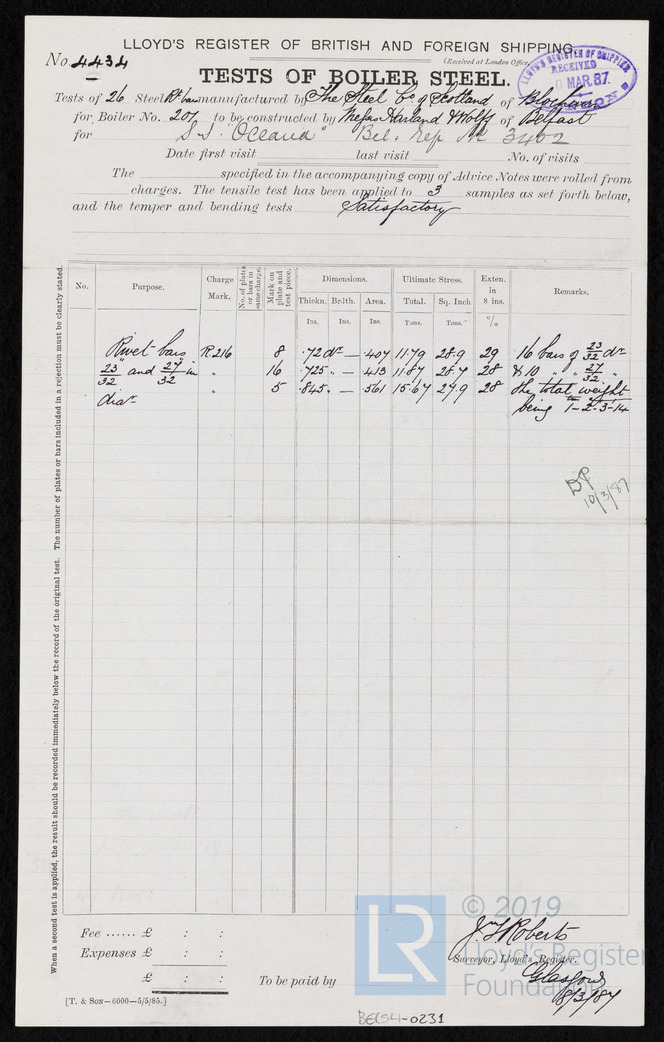 LLOYD'S REGISTER OF BRITISH AND FOREIGN SHIPPING.
No. 4434
(Received at London Office
LLOYD'S REGISTER OF SHIPPING
RECEIVED
MAR. 87.
TESTS OF BOILER STEEL.
Tests of 26 Steel Rt bars manufactured by The Steel Co of Scotland of Blochairn
for Boiler No. 207 to be constructed by Messrs Harland & Wolff of Belfast
for S.S. "Oceana" Bel. Rep No 3402
Date first visit last visit No. of visits
The specified in the accompanying copy of Advice Notes were rolled from
charges. The tensile test has been applied to 3 samples as set forth below,
and the temper and bending tests Satisfactory
No. Purpose. Charge Mark. No. of plates or bars in same charge. Mark on plate and test piece. Dimensions. Ultimate Stress. Exten. in 8 ins. Remarks.
Thickn. Brdth. Area. Total. Sq. Inch
Ins. Ins. Ins. Tons. Tons. %
Rivet bars R.216 8 .72 dr — .407 11.79 28.9 29 16 bars of 23/32 dr
23/32 and 27/32 in " 16 .725 " — .413 11.87 28.7 28 & 10 " " 27/32 "
diar " 5 .845 " — .561 15.67 27.9 28 the total weight
being 1-2-3-14
DP
10/3/87
When a second test is applied, the result should be recorded immediately below the record of the original test. The number of plates or bars included in a rejection must be clearly stated.
Fee ...... £ : :
Expenses £ : :
£ : :
To be paid by
Jas T Roberts
Surveyor, Lloyd's Register.
Glasgow
8/3/87
[T. & SON—6000—5/5/85.]
LR
© 2019
Lloyd's Register
Foundation
BEL54-0231